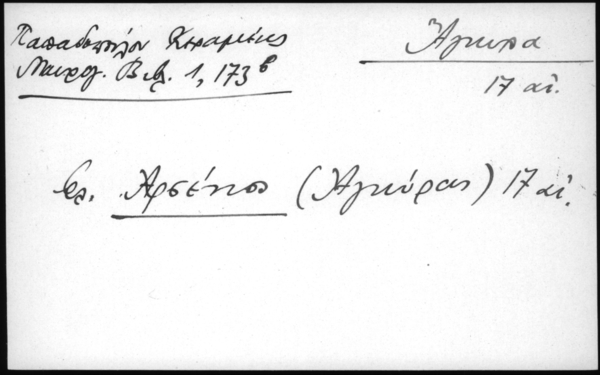 Παπαδοπούλου Κεραμέως
Μαυρογ. Βιβλ. 1, 173β
Ἄγκυρα
17 αἰ.
βλ. Ἀρσένιος (Ἀγκύρας) 17 αἰ.